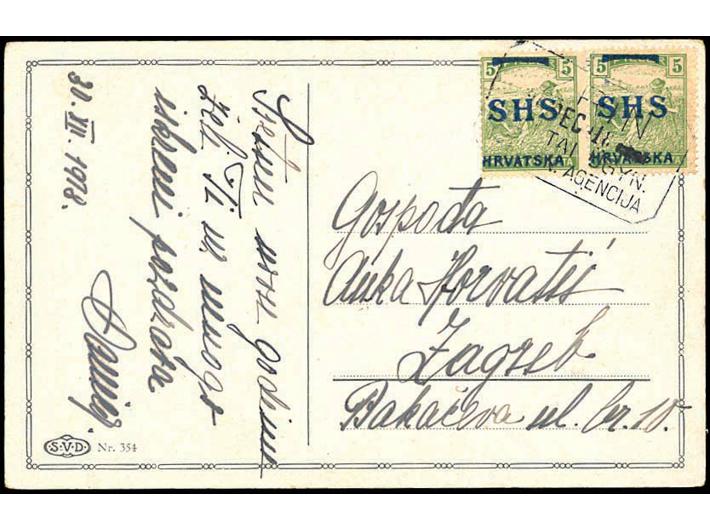 30. XII. 1918.
Sretnu novu godinu
želi Ti uz mnogo
iskreni pozdrava
S·V·D· Nr. 354
5 5
SHS
HRVATSKA
5 5
SHS
HRVATSKA
AGENCIJA
Gospođa
Anka Horvatić
Zagreb
Bakačeva ul. br. 10.